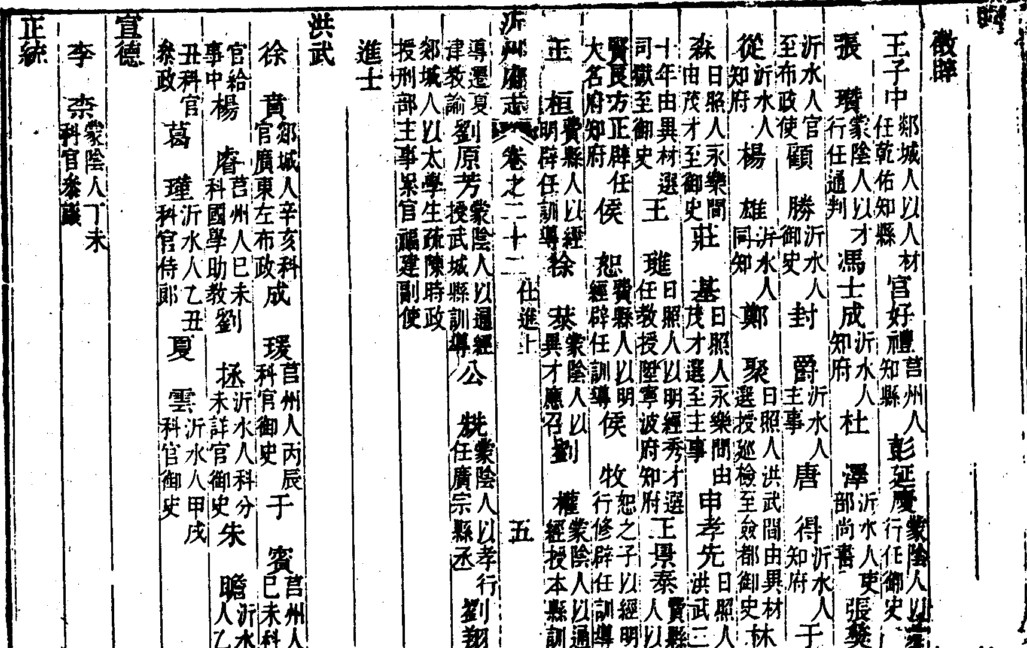 明
徵辟
王子中 郯城人以人材任乾佑知縣 官好禮 莒州人知縣 彭延慶 蒙陰人以 行任御史
張瓚 蒙陰人以才行任通判 馮士成 沂水人知府 杜澤 沂水人吏部尚書 張
沂水人官至布政使 顧勝 沂水人御史 封爵 沂水人主事 唐得 沂水人知府 于
從 沂水人知府 楊雄 沂水人同知 鄭聚 日照人洪武間由異材選授巡檢至僉都御史 林
森 日照人永樂間由茂才至御史 莊基 日照人永樂間由茂才選至主事 申孝先 日照人洪武二
十年由異材選司獄至御史 王璡 日照人以明經秀才選任教授陞寧波府知府 王景泰 費縣人以
賢良方正辟任大名府知府 侯恕 費縣人以明經辟任訓導 侯牧 恕之子以經明行修辟任訓導
王桓 費縣人以經明辟任訓導 徐荣 蒙陰人以異才應召 劉權 蒙陰人以通經授本縣訓
沂州府志 卷之二十二 仕進上 五
導遷夏津教諭 劉原芳 蒙陰人以通經授武城縣訓導 公 蒙陰人以孝行任廣宗縣丞 劉翔
郯城人以太學生疏陳時政授刑部主事累官福建副使
進士
洪武
徐賁 郯城人辛亥科官廣東左布政 成瑗 莒州人丙辰科官御史 于賓 莒州人己未科
官給事中 楊睿 莒州人己未科國學助教 劉拯 沂水人科分未詳官御史 朱瞻 沂水人乙
丑科官叅政 葛瑾 沂水人乙丑科官侍郎 夏雲 沂水人甲戌科官御史
宣德
李柰 蒙陰人丁未科官叅議
正統